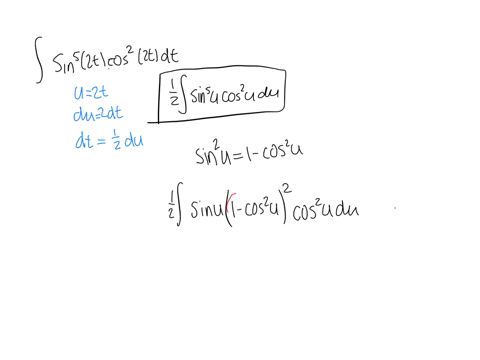 ∫ sin⁵(2t) cos²(2t) dt
u=2t
du=2dt
dt = ½ du
½ ∫ sin⁵u cos²u du
sin²u = 1 - cos²u
½ ∫ sinu (1-cos²u)² cos²u du